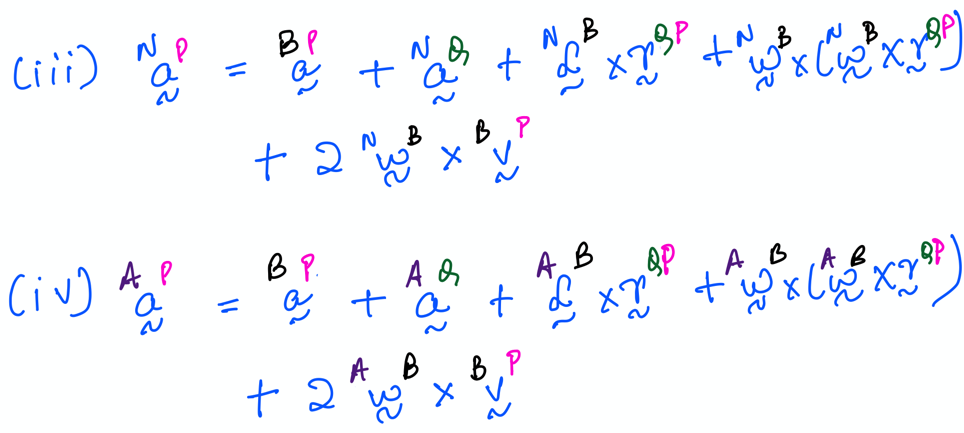 (iii) ᴺa̰ᴾ = ᴮa̰ᴾ + ᴺa̰Q + ᴺα̰ᴮ × r̰QP + ᴺω̰ᴮ × (ᴺω̰ᴮ × r̰QP)
+ 2 ᴺω̰ᴮ × ᴮv̰ᴾ
(iv) ᴬa̰ᴾ = ᴮa̰ᴾ + ᴬa̰Q + ᴬα̰ᴮ × r̰QP + ᴬω̰ᴮ × (ᴬω̰ᴮ × r̰QP)
+ 2 ᴬω̰ᴮ × ᴮv̰ᴾ